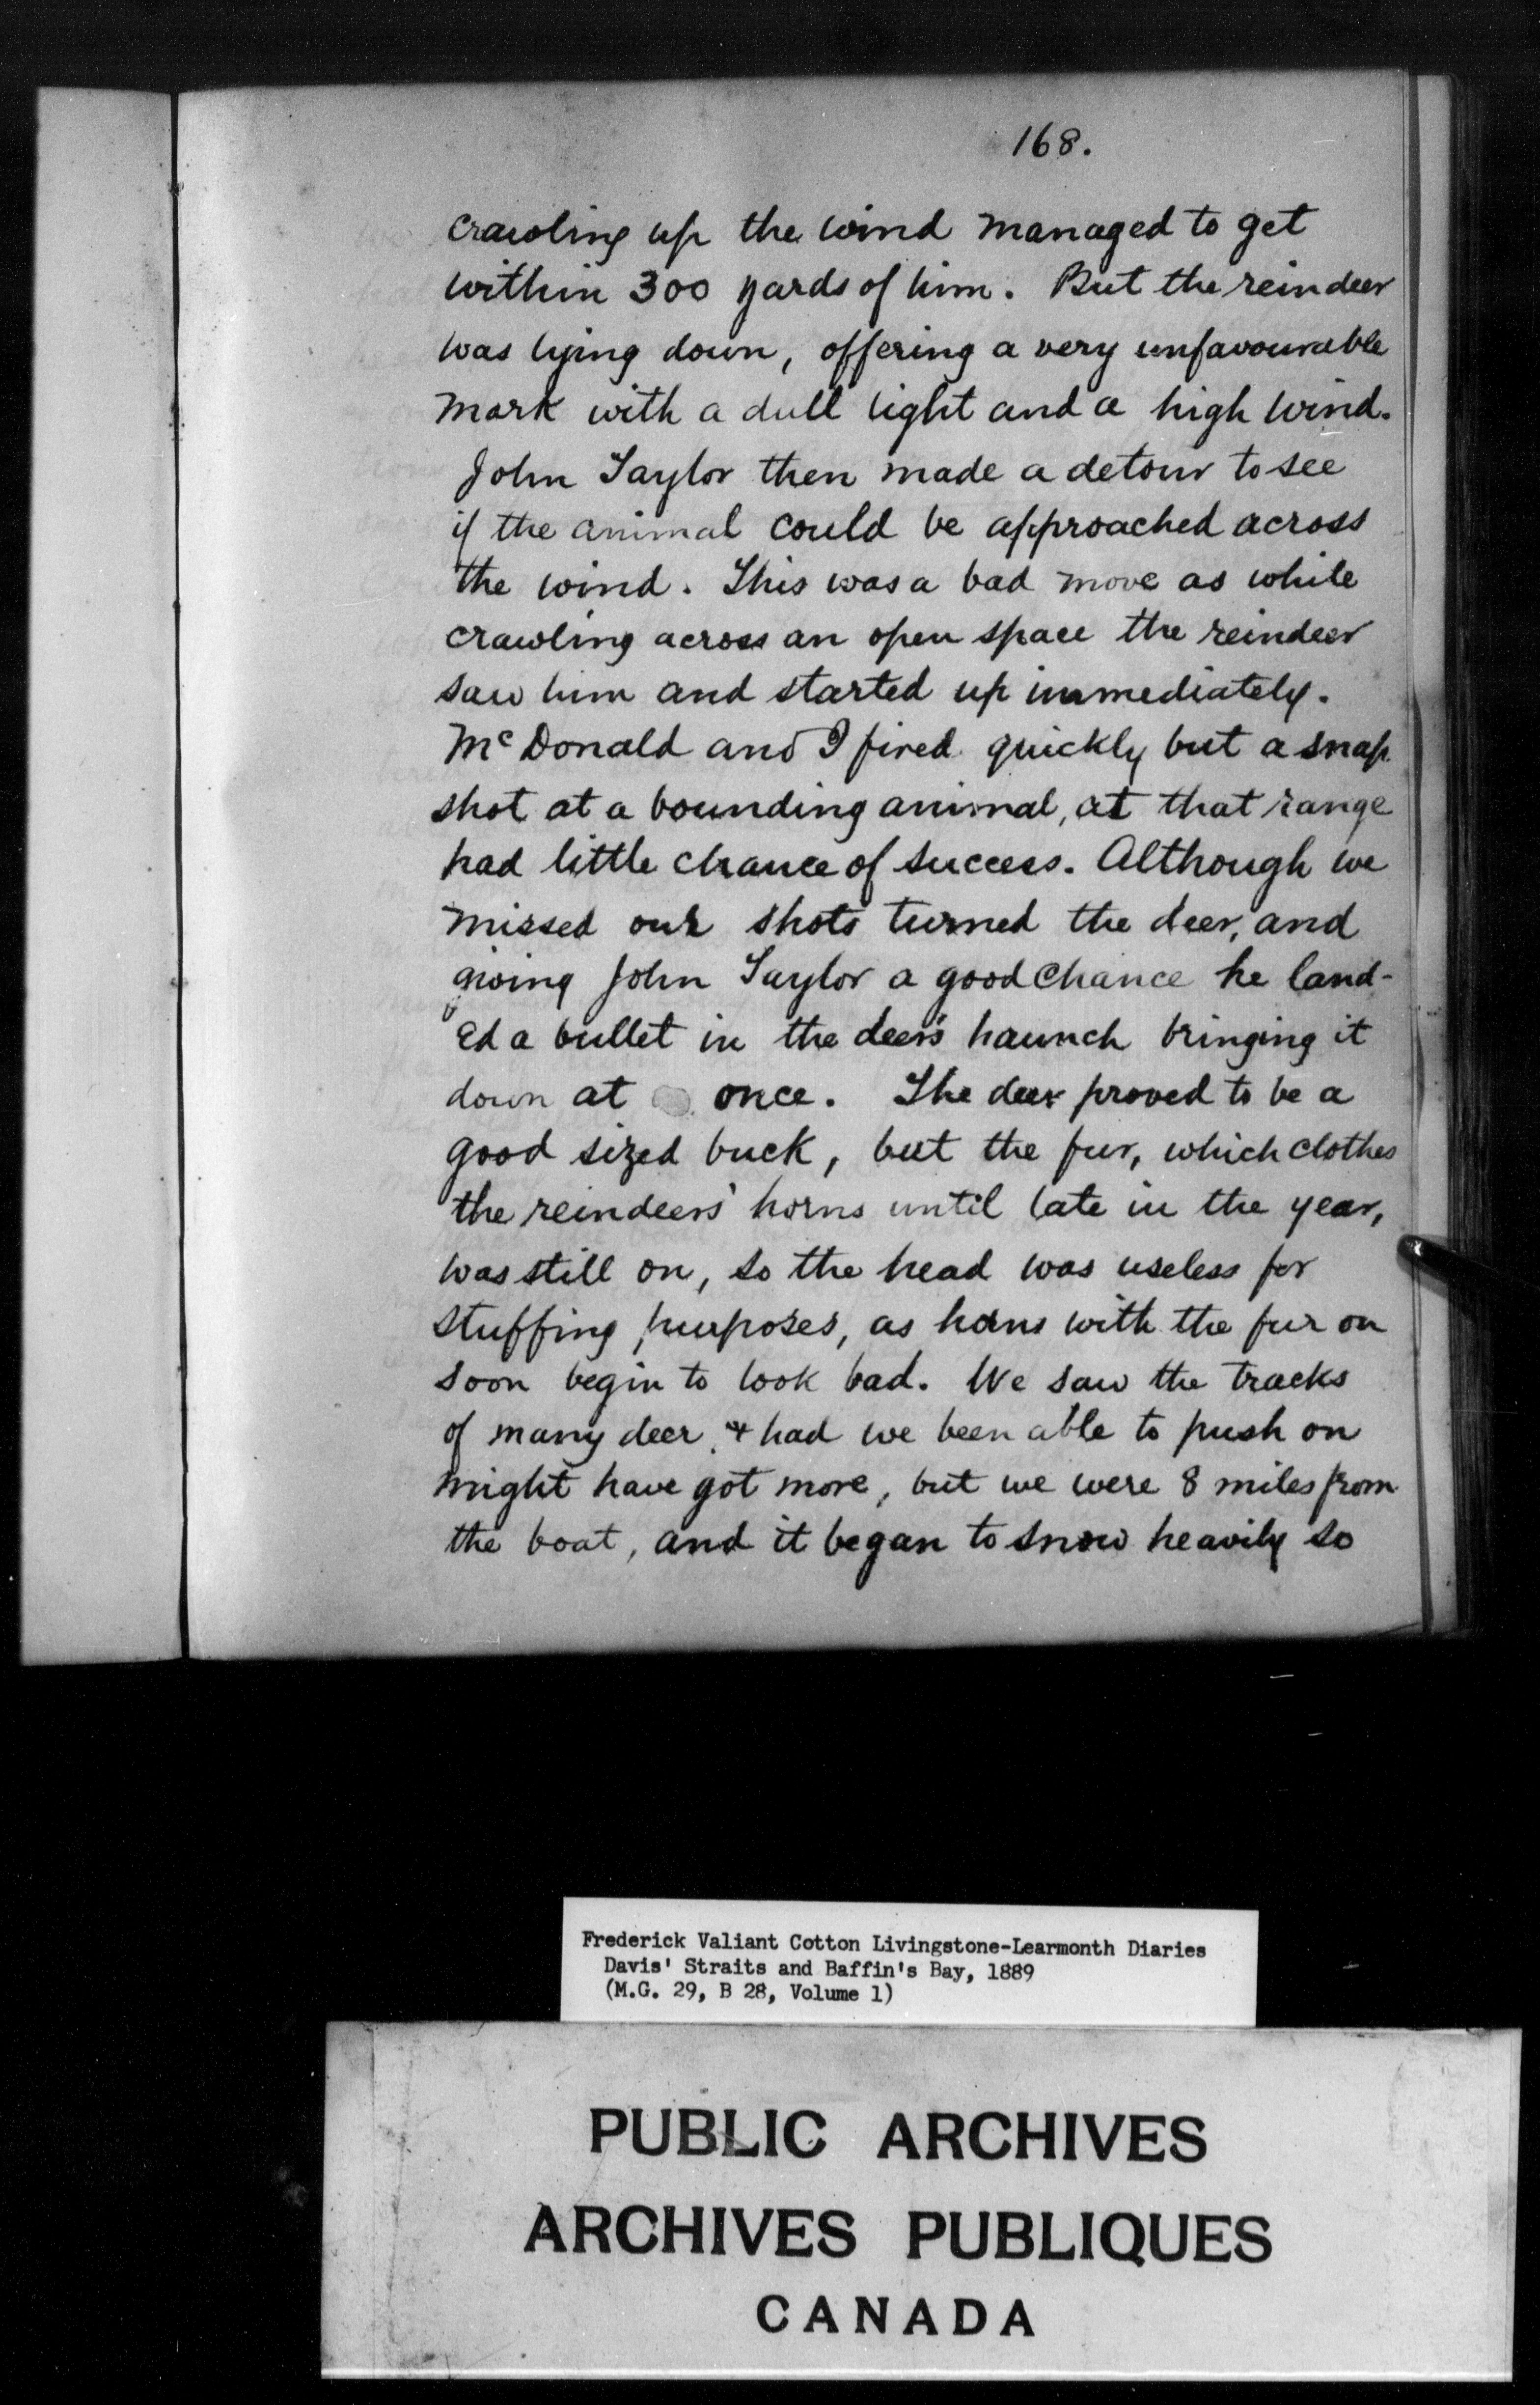 168.
crawling up the wind managed to get
within 300 yards of him. But the reindeer
was lying down, offering a very unfavourable
mark with a dull light and a high wind.
John Taylor then made a detour to see
if the animal could be approached across
the wind. This was a bad move as while
crawling across an open space the reindeer
saw him and started up immediately.
McDonald and I fired quickly but a snap
shot at a bounding animal, at that range
had little chance of success. Although we
missed our shots turned the deer, and
giving John Taylor a good chance he land-
ed a bullet in the deer's haunch bringing it
down at once. The deer proved to be a
good sized buck, but the fur, which clothes
the reindeers' horns until late in the year,
was still on, so the head was useless for
stuffing purposes, as horns with the fur on
soon begin to look bad. We saw the tracks
of many deer, & had we been able to push on
might have got more, but we were 8 miles from
the boat, and it began to snow heavily so
Frederick Valiant Cotton Livingstone-Learmonth Diaries
Davis' Straits and Baffin's Bay, 1889
(M.G. 29, B 28, Volume 1)
PUBLIC ARCHIVES
ARCHIVES PUBLIQUES
CANADA